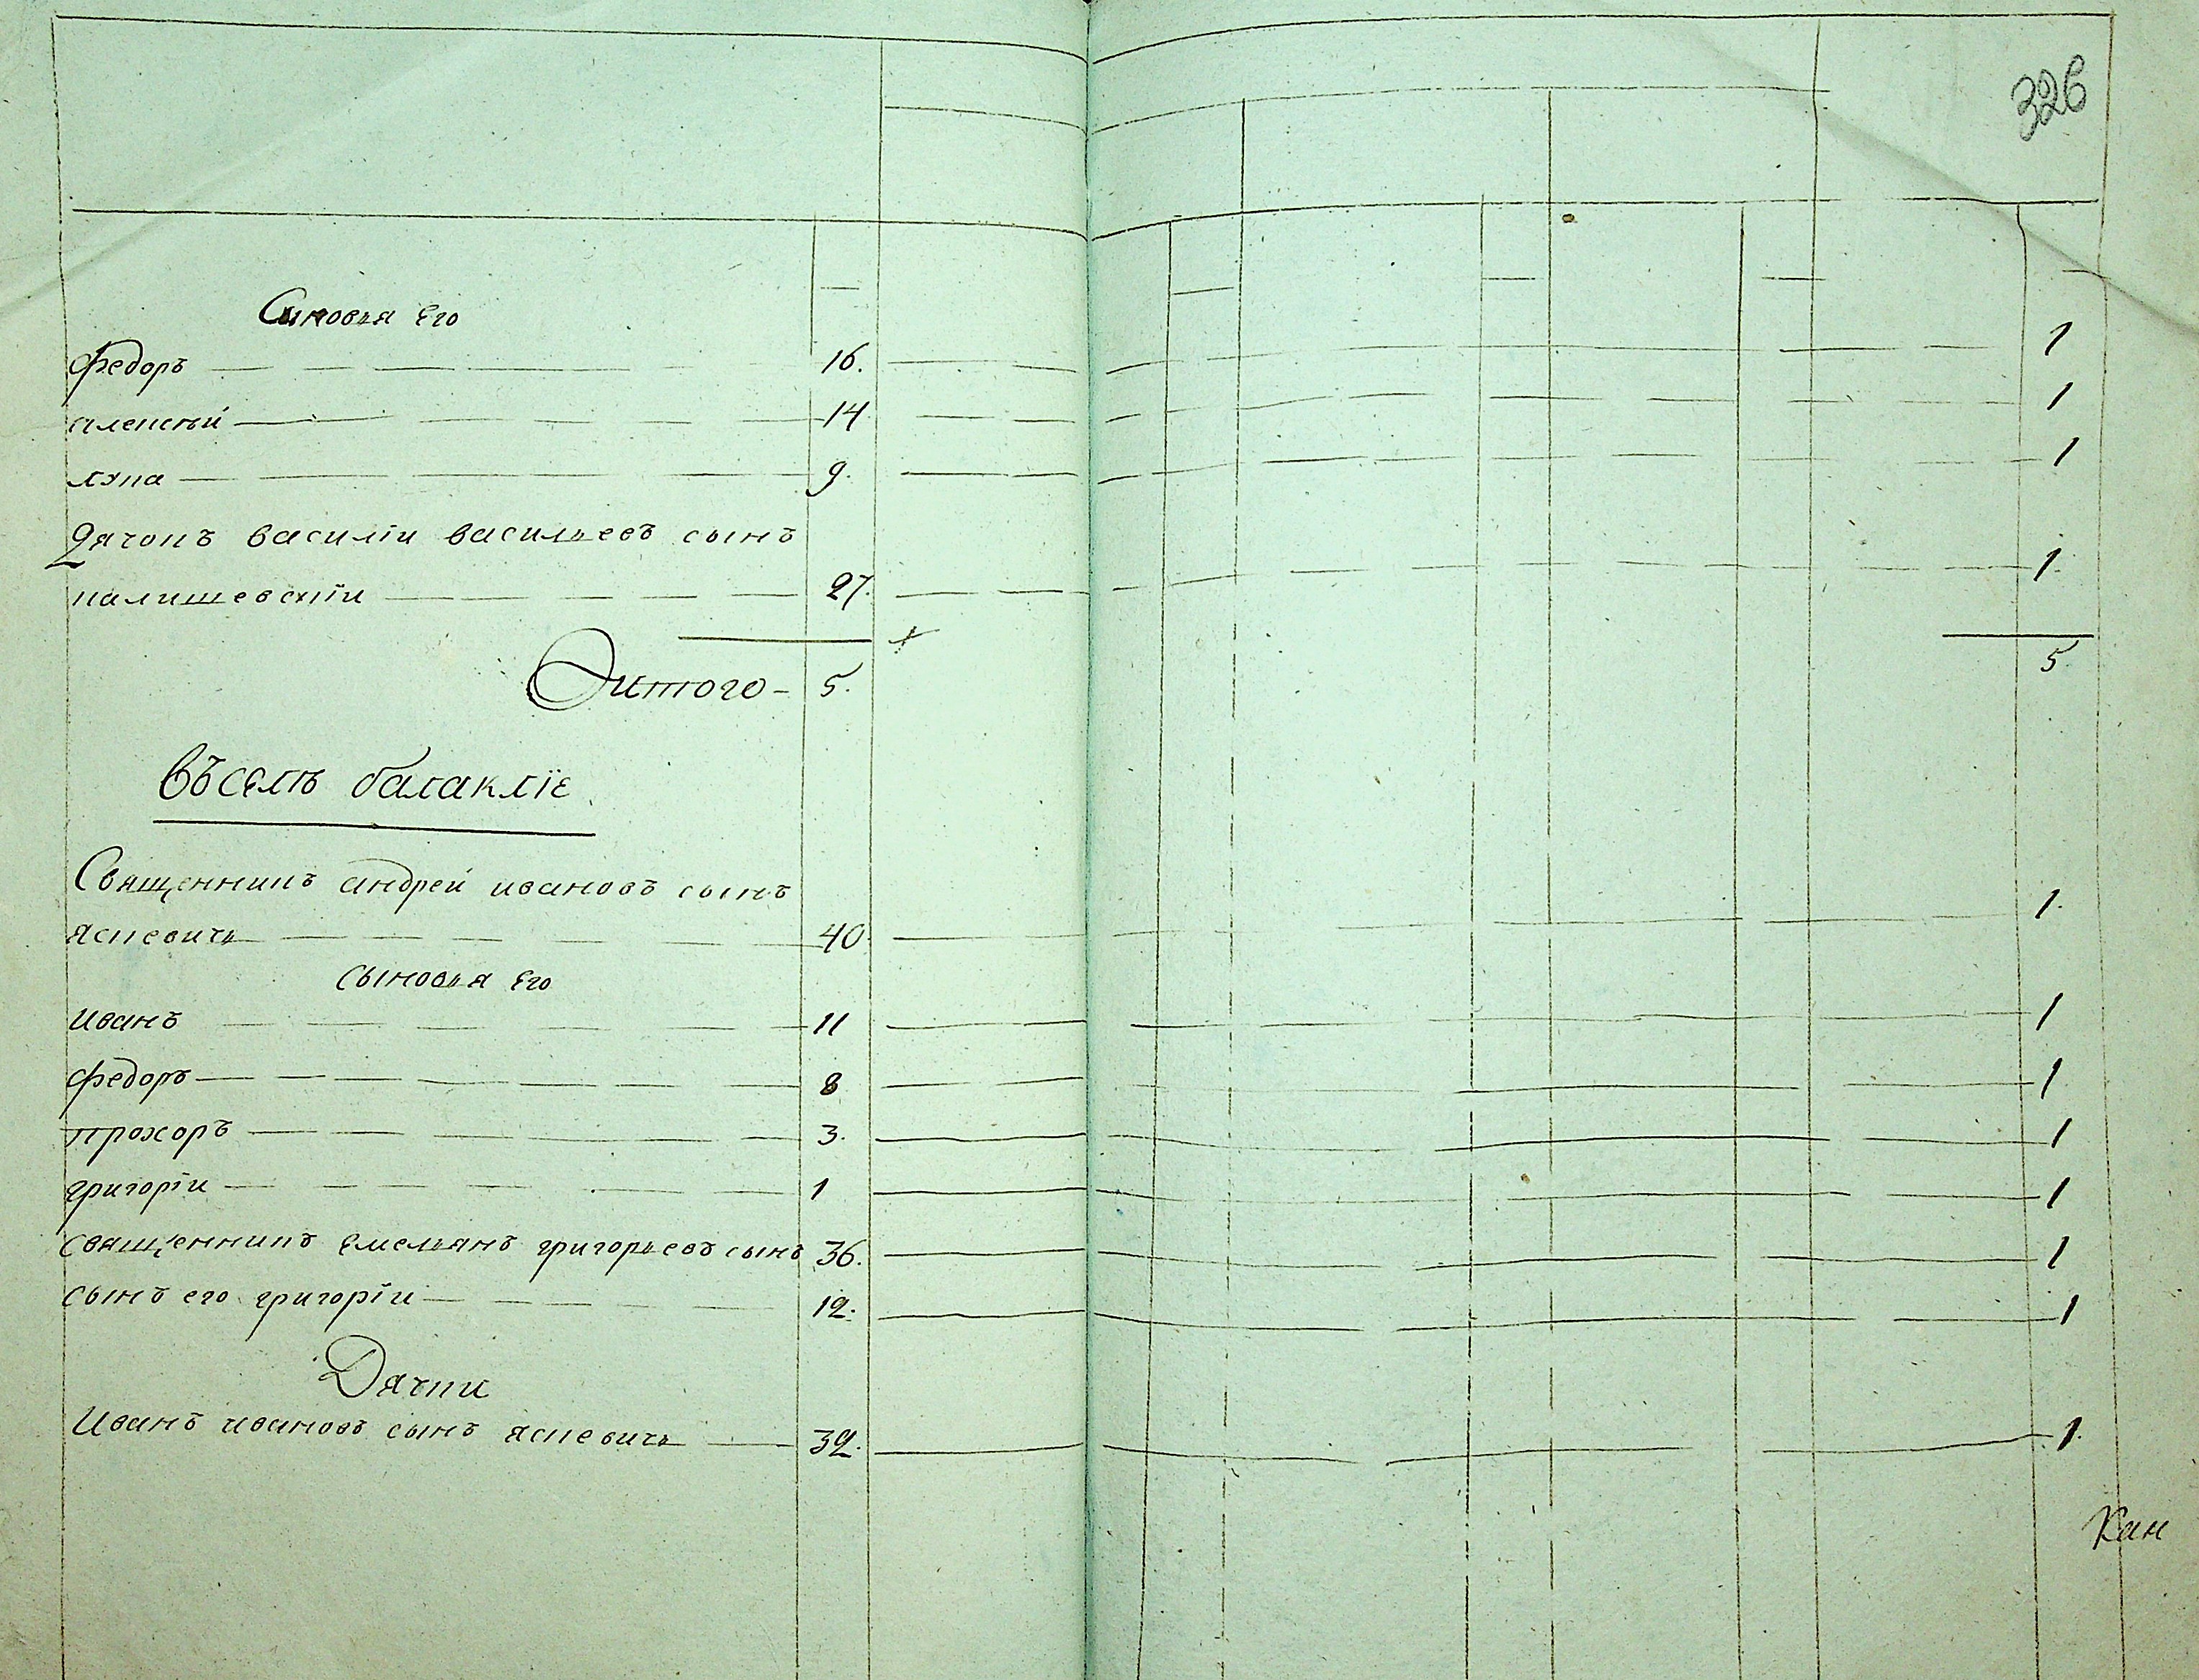 326
Сыновья Его
Федоръ 16. 1
алексѣй 14 1
лука 9. 1
Дячокъ василіи васильевъ сынъ
калишевскіи 27. 1.
Итого 5. 5.
въ селѣ балакліе
Священникъ андрей ивановъ сынъ
яскевичь 40 1.
сыновья Его
иванъ 11 1
федоръ 8 1
прохоръ 3. 1
григоріи 1 1
священникъ Емельянъ григорьевъ сынъ 36. 1
сынъ его григоріи 12. 1
Дячки
Иванъ ивановъ сынъ яскевичь 32. 1.
Кан